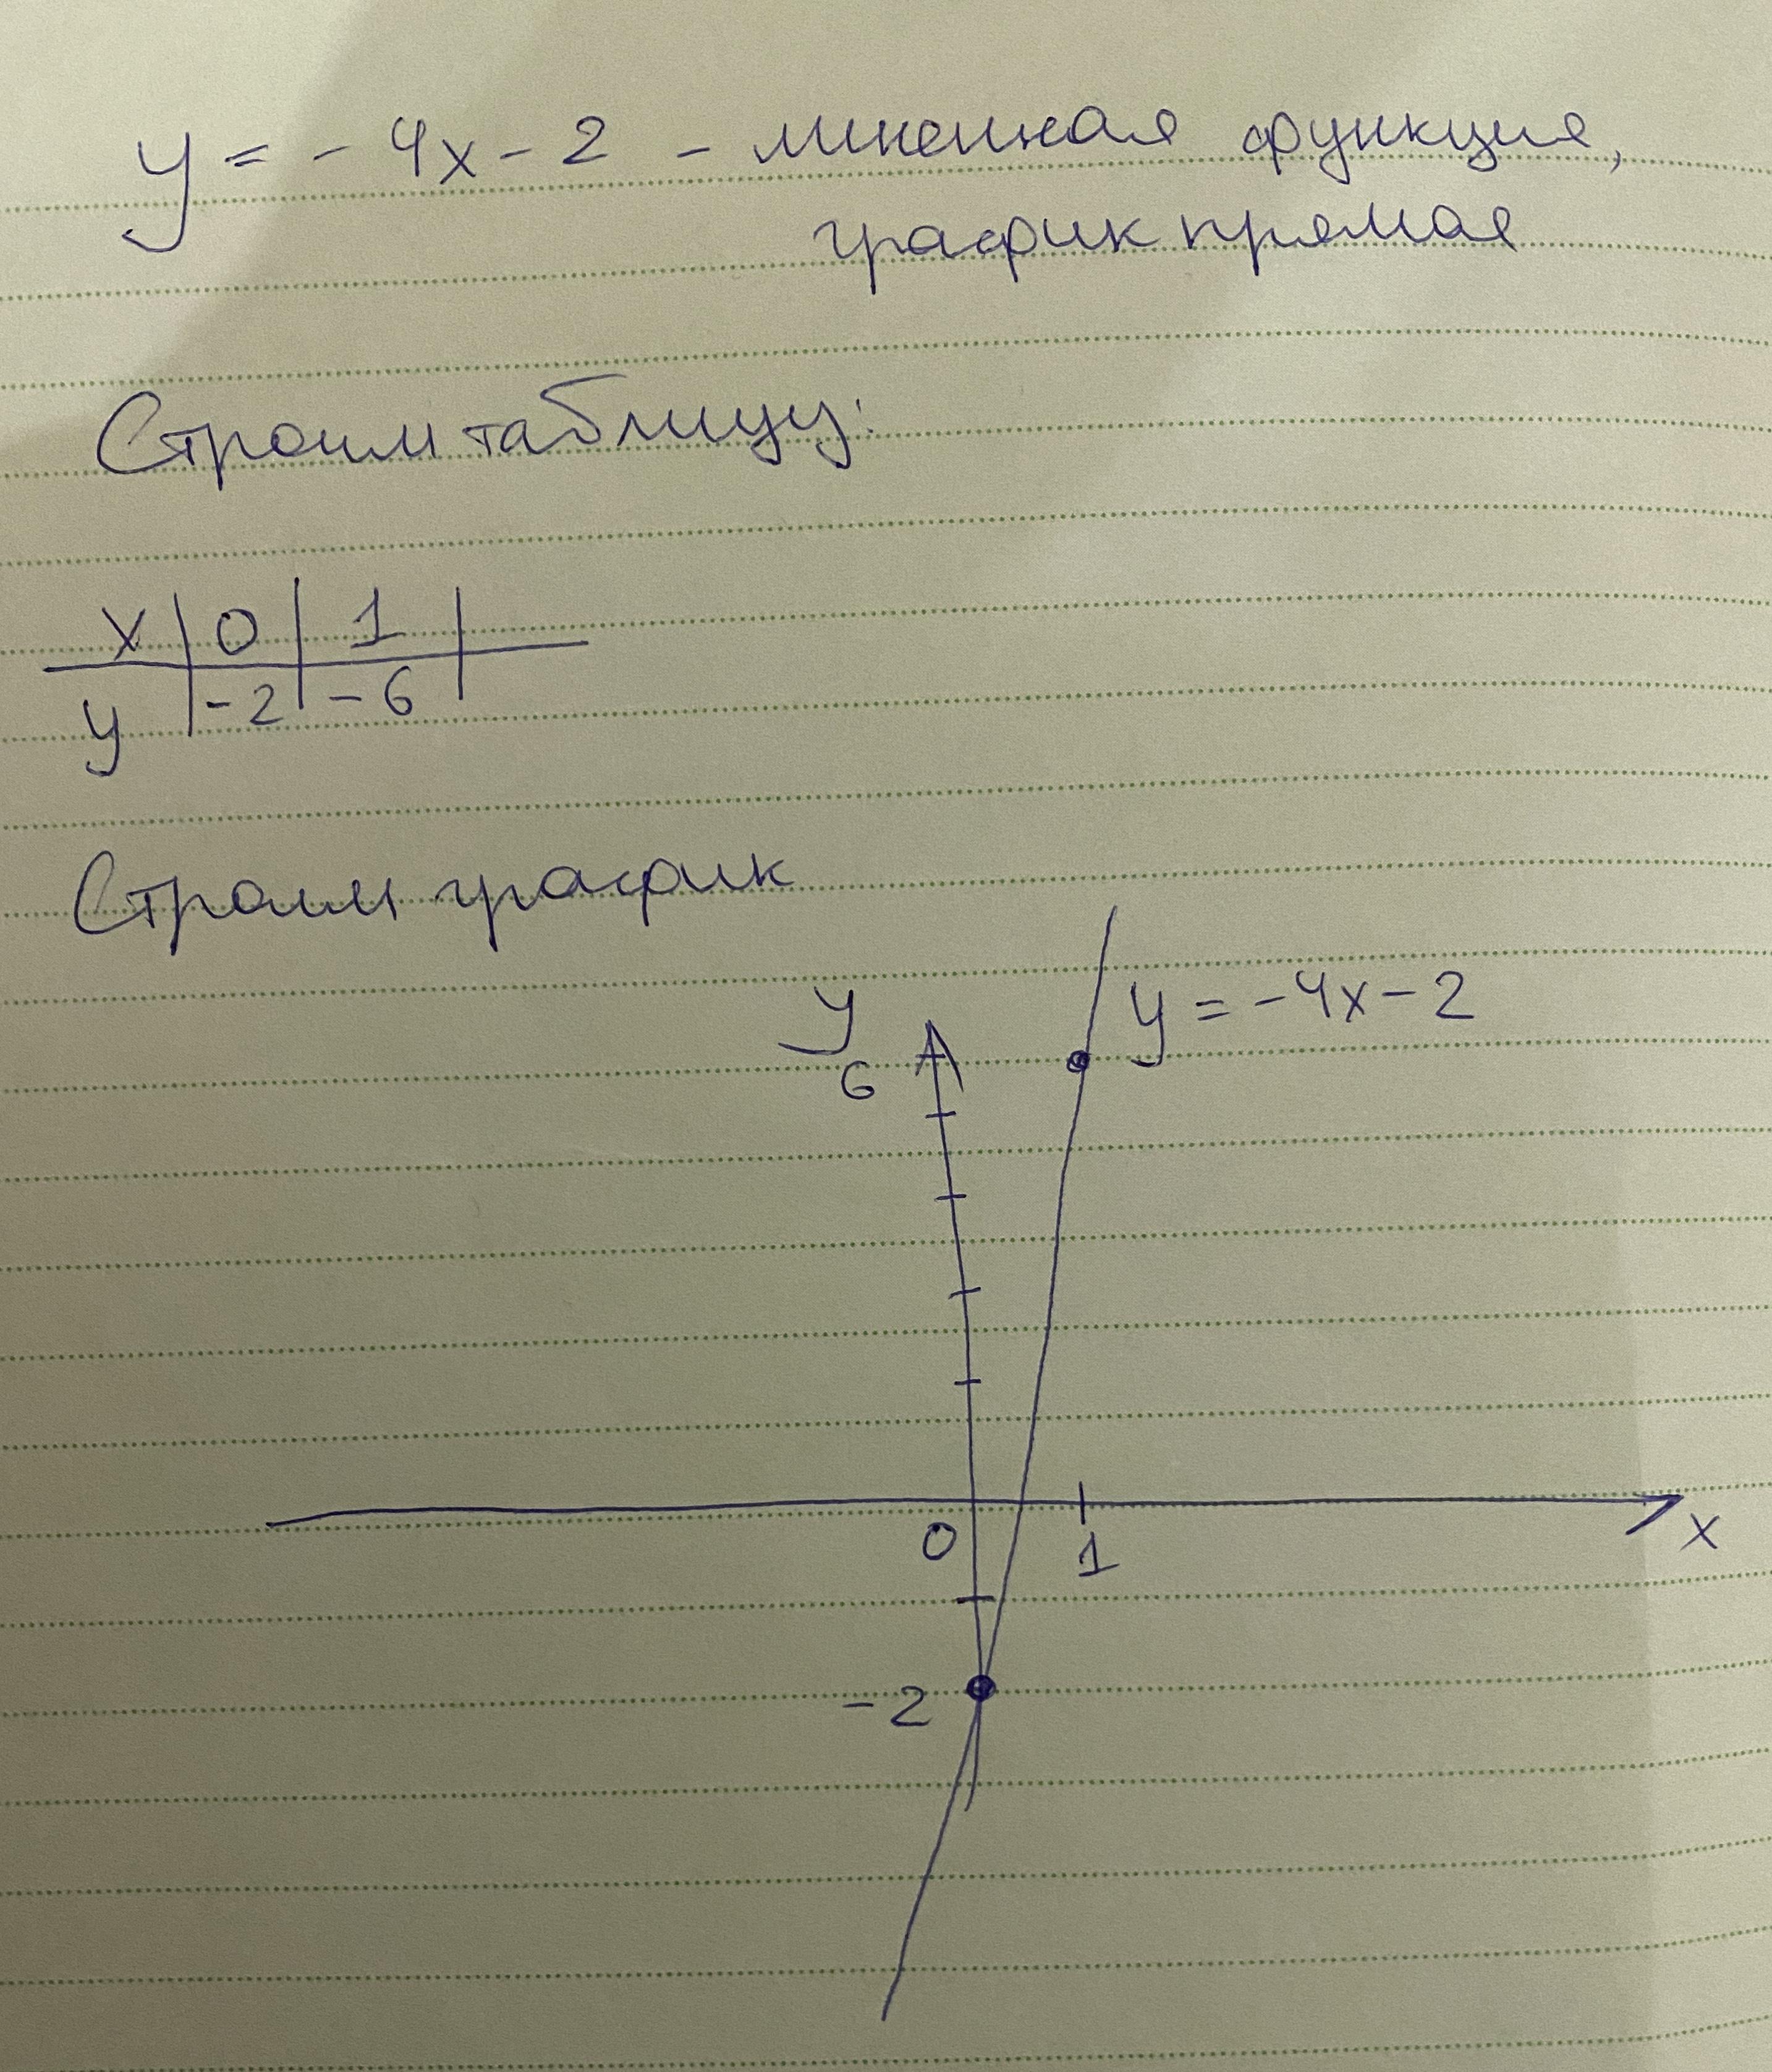 y = - 4x - 2 - линейная функция,
график прямая
Строим таблицу:
x | 0 | 1 |
y | -2 | -6 |
Строим график
y
y = -4x - 2
6
0
1
x
-2